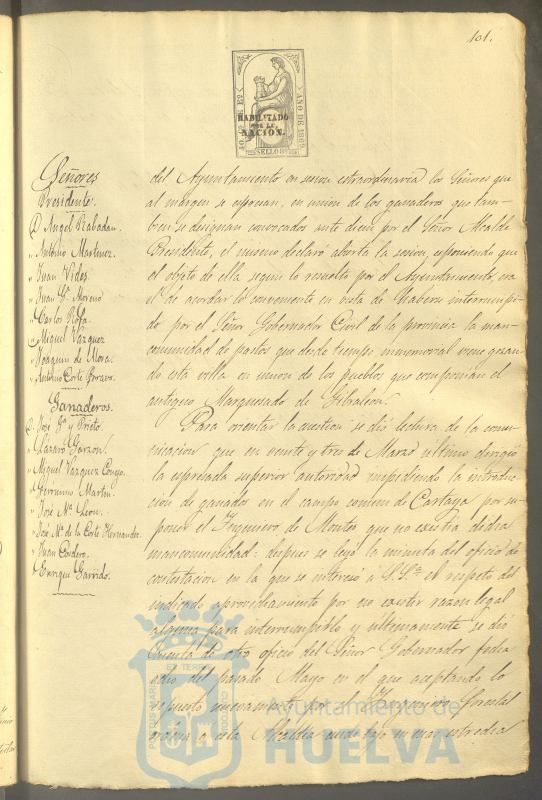 101.
AÑO DE 1869
HABILITADO
POR LA
NACION.
SELLO 8º
Señores
Presidente.
D. Angel Rabadan.
" Antonio Martinez.
" Juan Vides.
" Juan Gª Moreno
" Carlos Rofa.
" Miguel Vazquez
" Joaquin de Mora.
" Antonio Corte Bravo.
Ganaderos.
D. José Gª y Prieto.
" Lázaro Garzon.
" Miguel Vazquez Conejo.
" Gerónimo Martin.
" José Mª Leon.
" José Mª de la Corte Hernandez.
" Juan Cordero.
" Enrique Garrido.
del Ayuntamiento en sesion estraordinaria los Señores que
al margen se espresan, en union de los ganaderos que tam-
bien se designan convocados ante diem por el Señor Alcalde
Presidente, el mismo declaró abierta la sesion, esponiendo que
el objeto de ella segun lo resuelto por el Ayuntamiento, era
el de acordar lo conveniente en vista de haberse interrumpi-
do por el Señor Gobernador Civil de la provincia la man-
comunidad de pastos que desde tiempo inmemorial viene gozan-
do esta villa en union de los pueblos que componian el
antiguo Marquesado de Gibraleon.
Para orientar la cuestion se dió lectura de la comu-
nicacion que en veinte y tres de Marzo último dirigió
la espresada superior autoridad impidiendo la introduc-
cion de ganados en el campo comun de Cartaya por su-
poner el Ingeniero de Montes que no existia dicha
mancomunidad: despues se leyó la minuta del oficio de
contestacion en la que se interesó a S.Sª el respeto del
indicado aprovechamiento por no existir razon legal
alguna para interrumpirlo y ultimamente se dió
cuenta de otro oficio del Señor Gobernador fecha
del pasado Mayo en el que aceptando lo
espuesto nuevamente por el Ingeniero forestal
ordena a esta Alcaldia cuide bajo su mas estrecha
PORTUS MARIS
ET TERRE
CUSTODIA
Ayuntamiento de
HUELVA